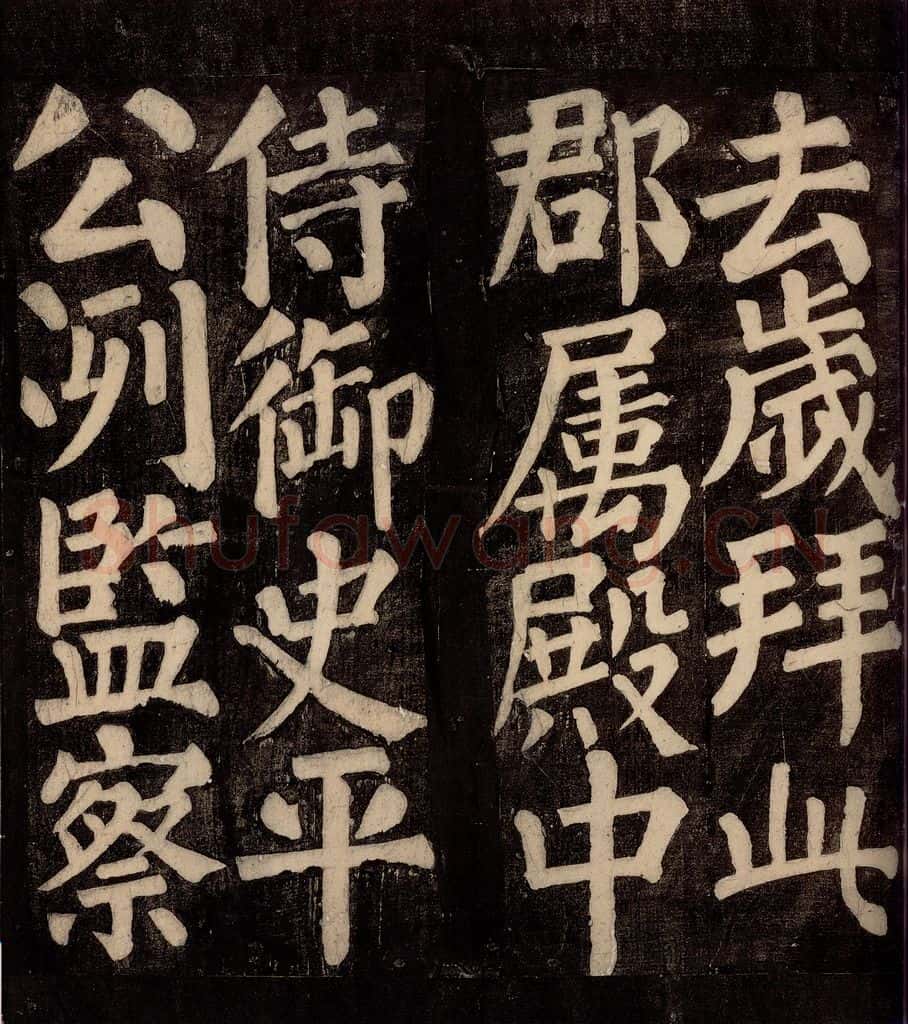 去歲拜此
郡屬殿中
侍御史平
公冽監察
Shufawang.CN